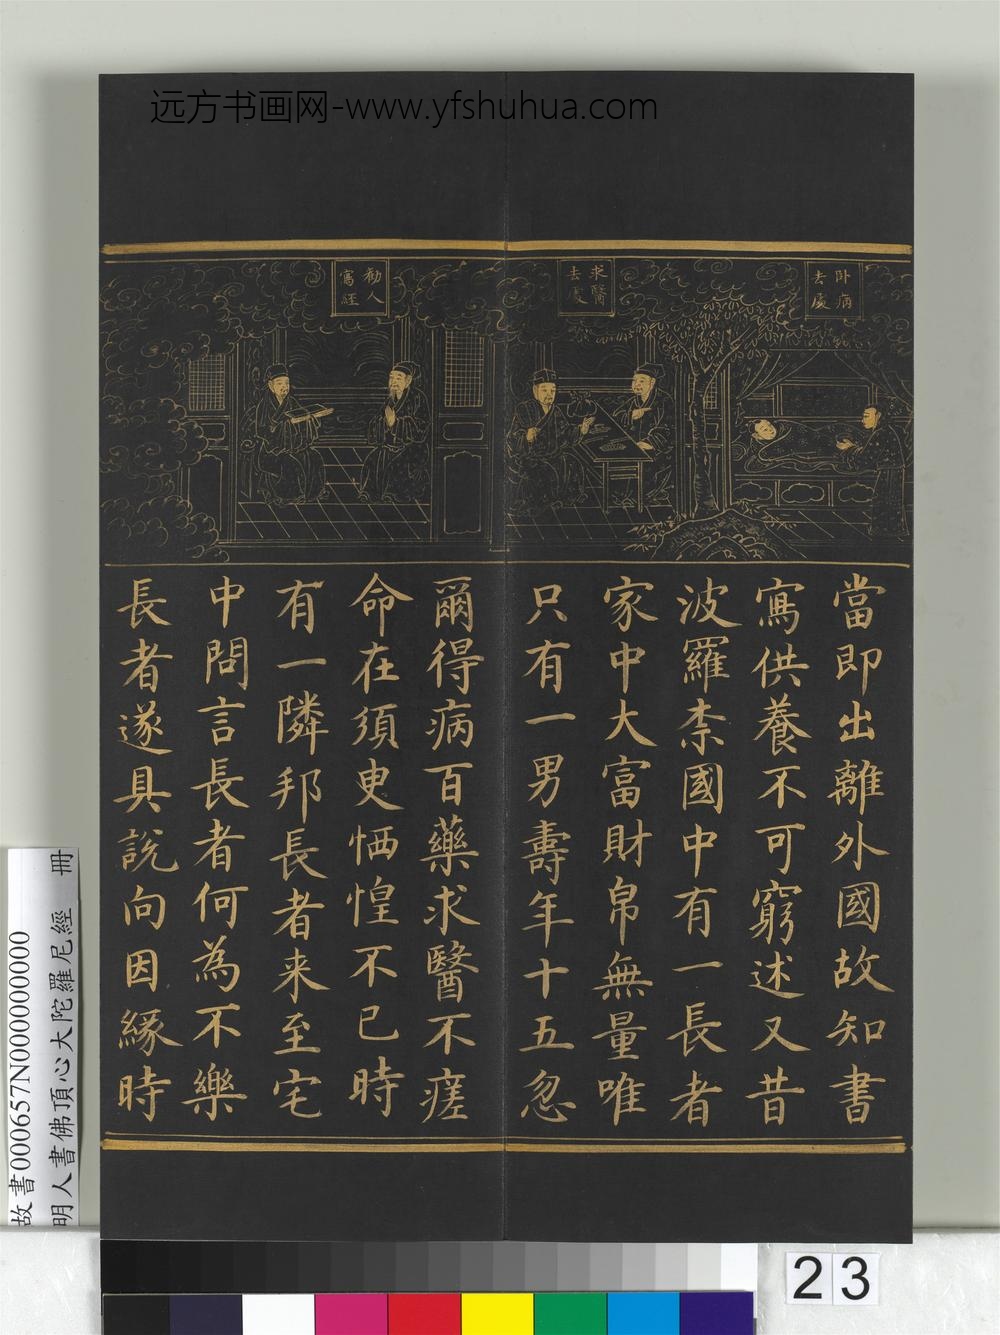 远方书画网-www.yfshuhua.com
卧病
去處
求醫
去處
勸人
寫經
當即出離外國故知書
寫供養不可窮述又昔
波羅柰國中有一長者
家中大富財帛無量唯
只有一男壽年十五忽
爾得病百藥求醫不瘥
命在須臾恓惶不已時
有一隣邦長者来至宅
中問言長者何為不樂
長者遂具說向因緣時
故書000657N000000000
明人書佛頂心大陀羅尼經 冊
23